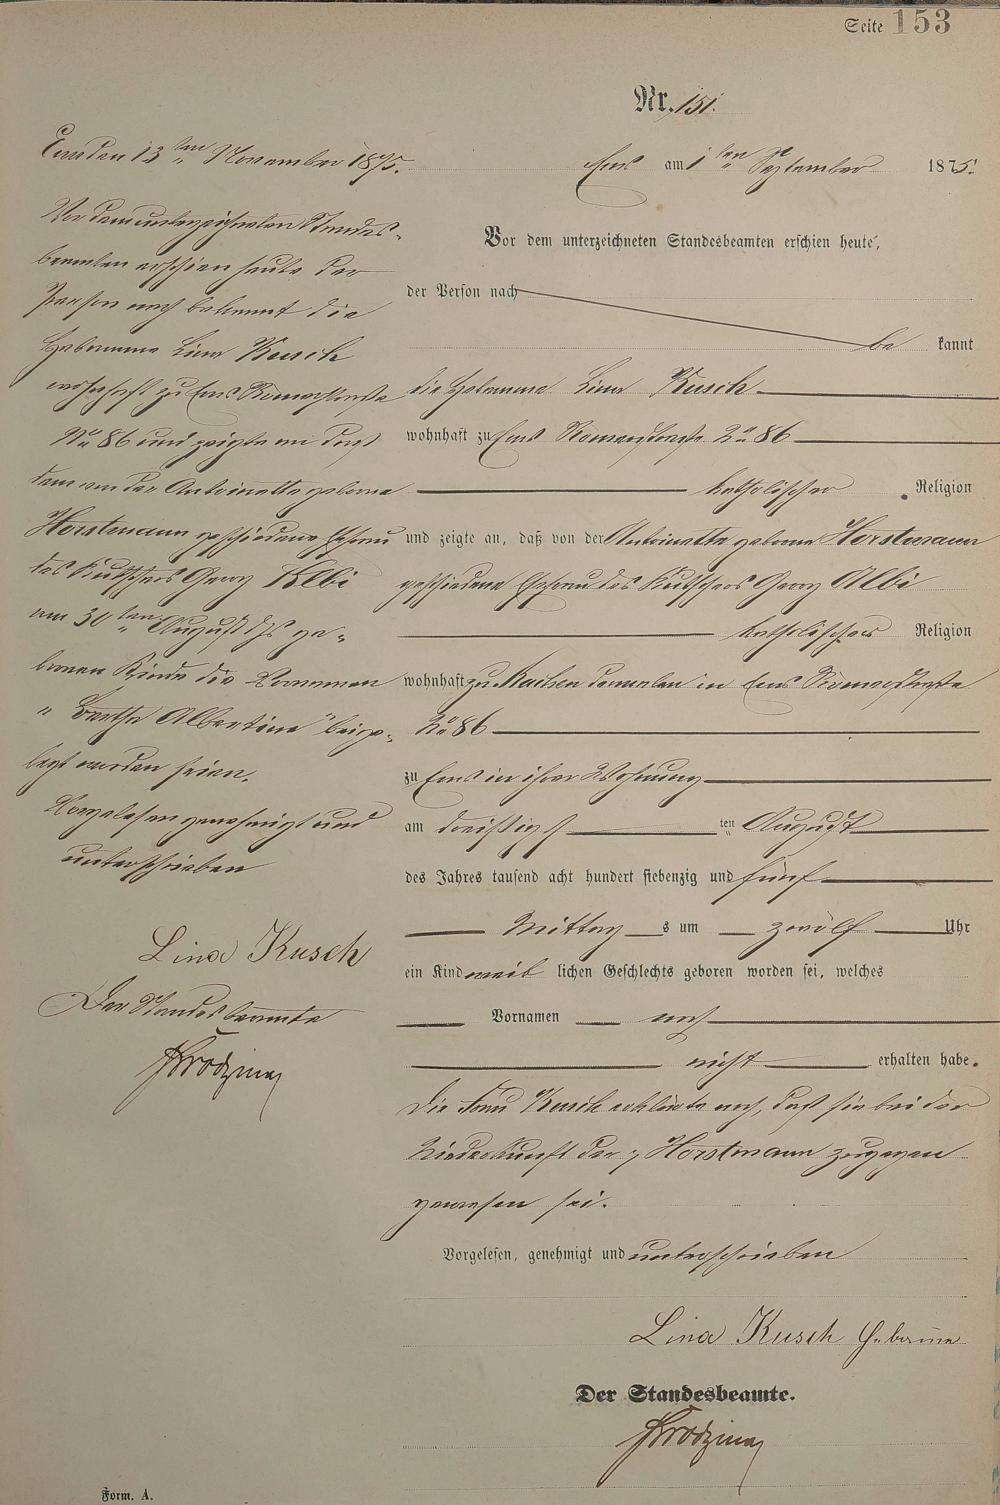 Seite 153
Nr. 151.
Ems am 1ten September 1875.
Vor dem unterzeichneten Standesbeamten erschien heute,
der Person nach
bekannt
die Hebamme Lina Kusch
wohnhaft zu Ems Römerstraße No 86
katholischer Religion
und zeigte an, daß von der Antoinette geborne Horstmann
geschiedene Ehefrau des Kutschers Georg Albi
katholischer Religion
wohnhaft zu Aachen dermalen in Ems Römerstraße
No 86
zu Ems in ihrer Wohnung
am dreißigsten August
des Jahres tausend acht hundert siebenzig und fünf
Mittags um zwölf Uhr
ein Kind weiblichen Geschlechts geboren worden sei, welches
Vornamen noch
nicht erhalten habe.
Die Frau Kusch erklärte noch, daß sie bei der
Niederkunft der Horstmann zugegen
gewesen sei.
Vorgelesen, genehmigt und unterschrieben
Lina Kusch Hebamme
Der Standesbeamte.
Ems den 13ten November 1875.
Vor dem unterzeichneten Standes-
beamten erschien heute der
Person nach bekannt die
Hebamme Lina Kusch
wohnhaft zu Ems Römerstraße
No 86 und zeigte an daß
dem von der Antoinette geborne
Horstmann geschiedene Ehefrau
des Kutschers Georg Albi
am 30ten August d. Js ge-
bornen Kinde die Vornamen
"Bertha Albertine" beige-
legt worden seien.
Vorgelesen genehmigt und
unterschrieben
Lina Kusch
Der Standesbeamte
Form. A.